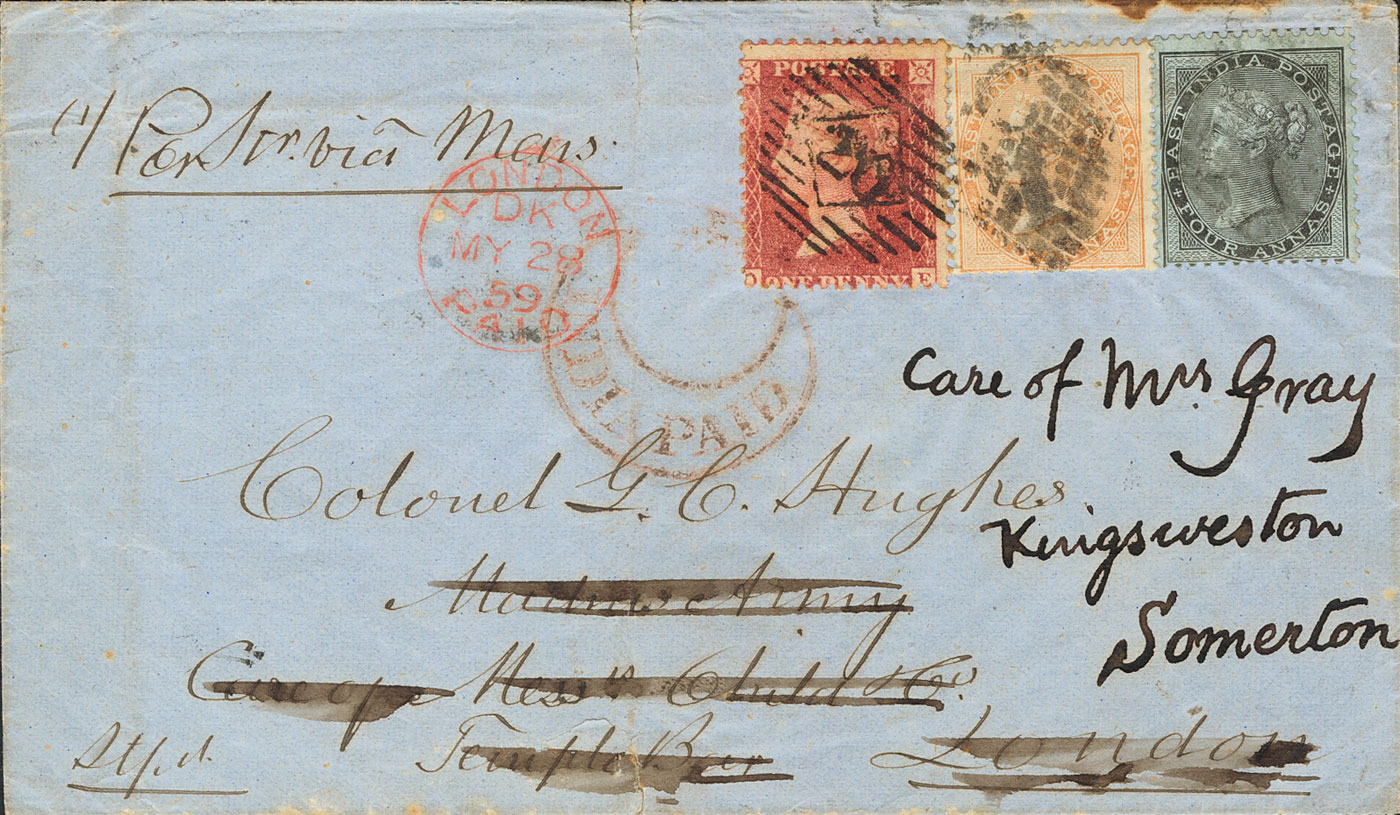 Per Str. via Mars.
LONDON
DK
MY 28
59
PAID
INDIA PAID
POSTAGE
ONE PENNY
E
EAST INDIA POSTAGE
EAST INDIA POSTAGE
FOUR ANNAS
Care of Mrs Gray
Kingsweston
Somerton
Colonel G. C. Hughes
Madras Army
Care of Messrs Child & Co.
Temple Bar
London